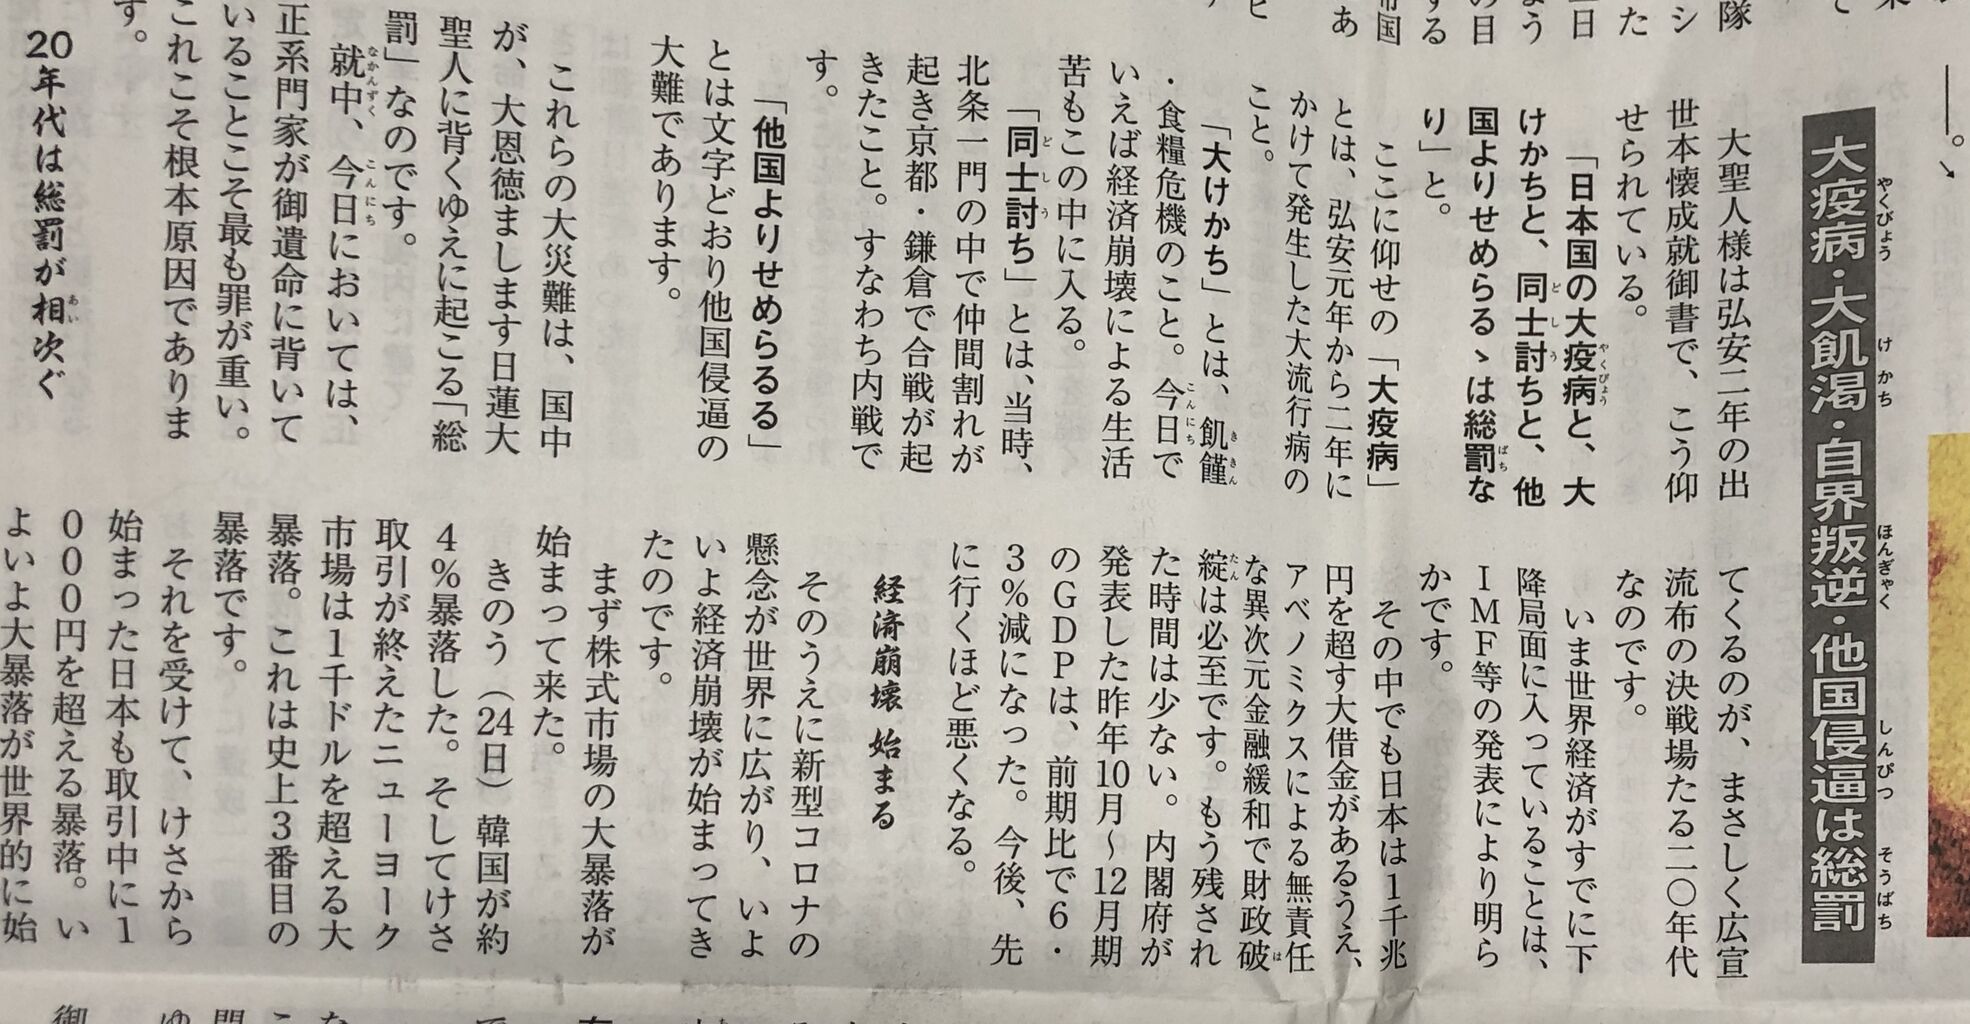 大疫病・大飢渇・自界叛逆・他国侵逼は総罰
やくびょう
け かち
ほんぎゃく
しんぴつ
そうばち
大聖人様は弘安二年の出
世本懐成就御書で、こう仰
せられている。
「日本国の大疫病と、大
やくびょう
けかちと、同士討ちと、他
どしう
国よりせめらるゝは総罰な
ばち
り」と。
ここに仰せの「大疫病」
とは、弘安元年から二年に
かけて発生した大流行病の
こと。
「大けかち」とは、飢饉
ききん
・食糧危機のこと。今日で
こんにち
いえば経済崩壊による生活
苦もこの中に入る。
「同士討ち」とは、当時、
どしう
北条一門の中で仲間割れが
起き京都・鎌倉で合戦が起
きたこと。すなわち内戦で
す。
「他国よりせめらるる」
とは文字どおり他国侵逼の
大難であります。
これらの大災難は、国中
が、大恩徳まします日蓮大
聖人に背くゆえに起こる「総
罰」なのです。
就中、今日においては、
なかんずく
こんにち
正系門家が御遺命に背いて
いることこそ最も罪が重い。
これこそ根本原因でありま
す。
20年代は総罰が相次ぐ
あい
てくるのが、まさしく広宣
流布の決戦場たる二〇年代
なのです。
いま世界経済がすでに下
降局面に入っていることは、
IMF等の発表により明ら
かです。
その中でも日本は1千兆
円を超す大借金があるうえ、
アベノミクスによる無責任
な異次元金融緩和で財政破
は
綻は必至です。もう残され
たん
た時間は少ない。内閣府が
発表した昨年10月～12月期
のGDPは、前期比で6・
3%減になった。今後、先
に行くほど悪くなる。
経済崩壊 始まる
そのうえに新型コロナの
懸念が世界に広がり、いよ
いよ経済崩壊が始まってき
たのです。
まず株式市場の大暴落が
始まって来た。
きのう（24日）韓国が約
4%暴落した。そしてけさ
取引が終えたニューヨーク
市場は1千ドルを超える大
暴落。これは史上3番目の
暴落です。
それを受けて、けさから
始まった日本も取引中に1
000円を超える暴落。い
よいよ大暴落が世界的に始